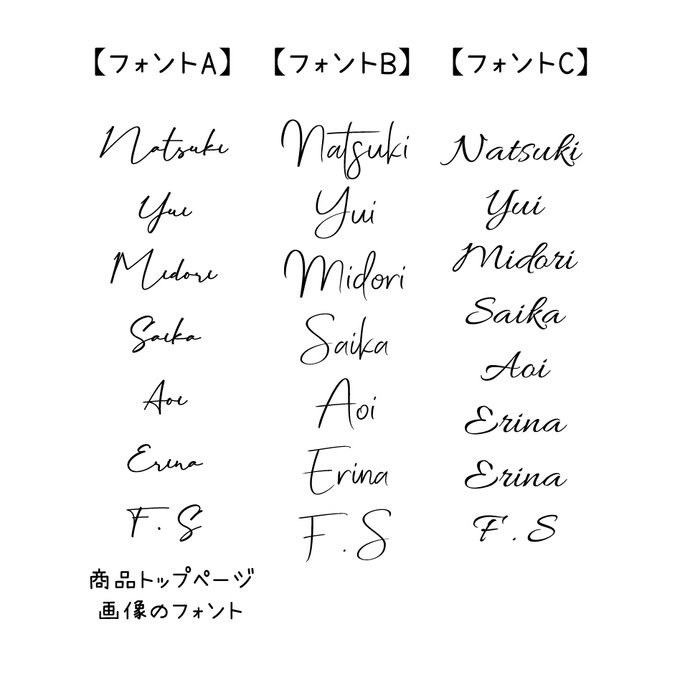 【フォントA】 【フォントB】 【フォントC】
Natsuki Natsuki Natsuki
Yui Yui Yui
Midori Midori Midori
Saika Saika Saika
Aoi Aoi Aoi
Erina Erina Erina
Erina
F.S F.S F.S
商品トップページ
画像のフォント